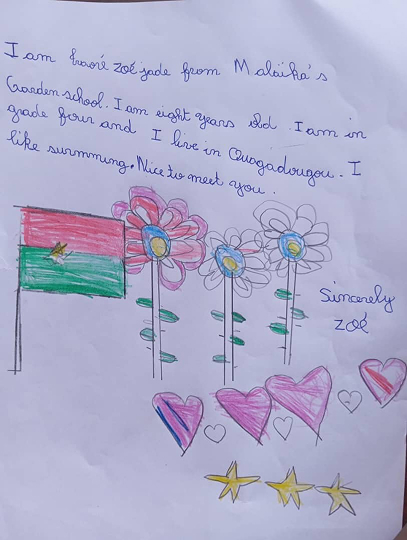 I am traoré zoé jade from Malaïka's
Gaeden school. I am eight years old. I am in
grade four and I live in Ouagadougou. I
like surmming. Nice to meet you.
Sincerely
zoé